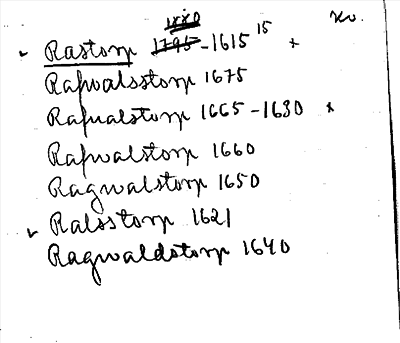 Rastorp 1795-1615 15 x
Rafvalsstorp 1675
Rafualstorp 1665-1630 x
Rafwalstorp 1660
Ragwalstorp 1650
Ralsstorp 1621
Ragwaldstorp 1640